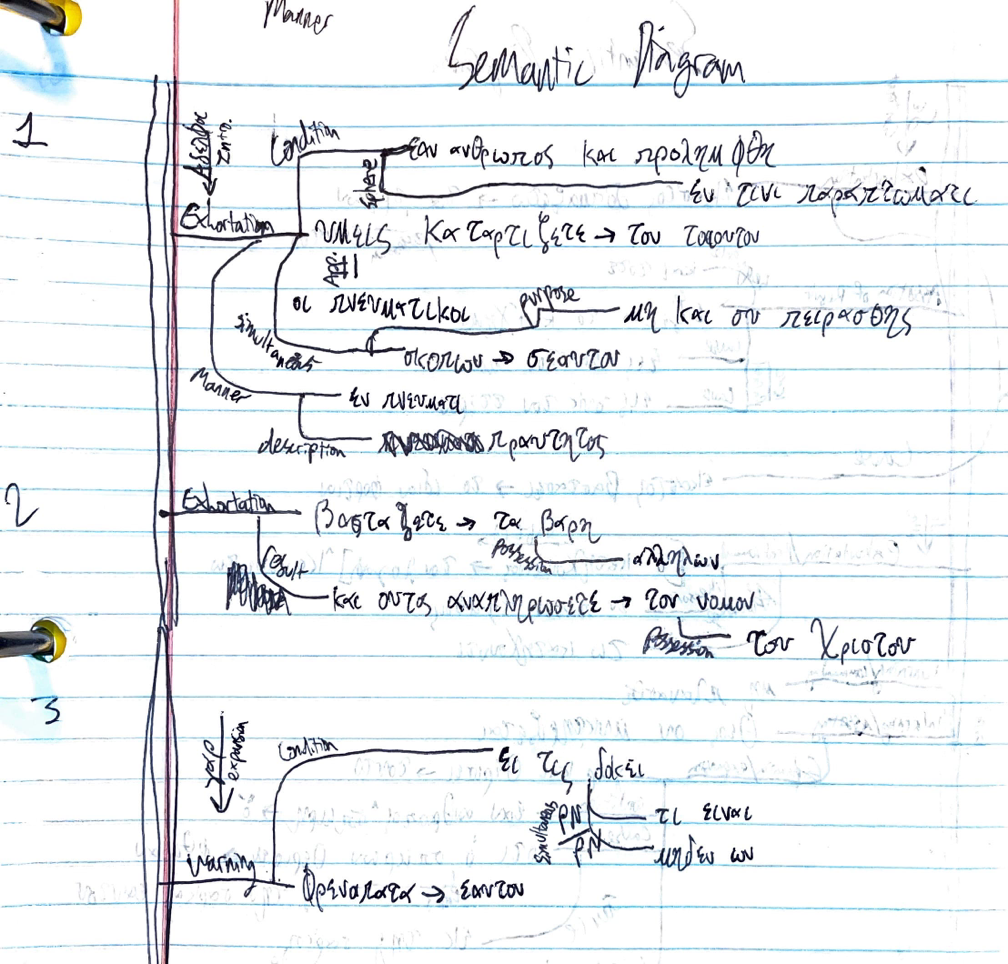 Manner
Semantic Diagram
1
Αδελφοι
Intro.
Condition
εαν ανθρωπος και προλημφθη
Sphere
εν τινι παραπτωματι
Exhortation
υμεις καταρτιζετε → τον τοιουτον
App.
οι πνευματικοι
purpose
μη και συ πειρασθης
simultaneous
σκοπων → σεαυτον
Manner
εν πνευματι
description
πραυτητος
2
Exhortation
βασταζετε → τα βαρη
Possession
αλληλων
result
και ουτος αναπληρωσετε → τον νομον
Possession
του Χριστου
3
γαρ
expansion
Condition
ει τις δοκει
simultaneous
PN
τι ειναι
PN
μηδεν ων
Warning
φρεναπατα → εαυτον